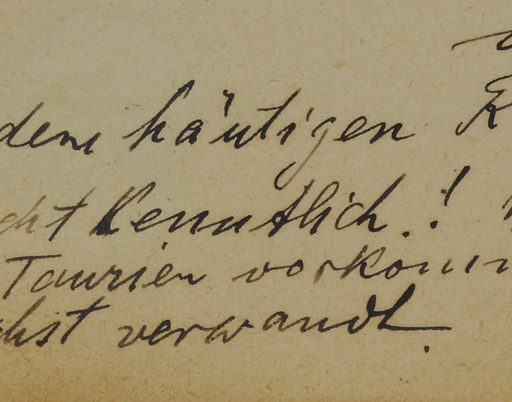 dem häutigen
cht Kenntlich.!
Taurien vorkomm
chst verwandt.